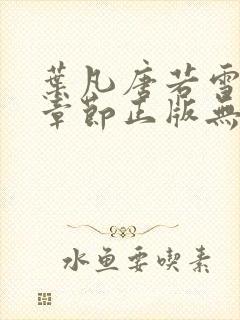 葉凡唐若雪
章節正版無
水魚要喫素